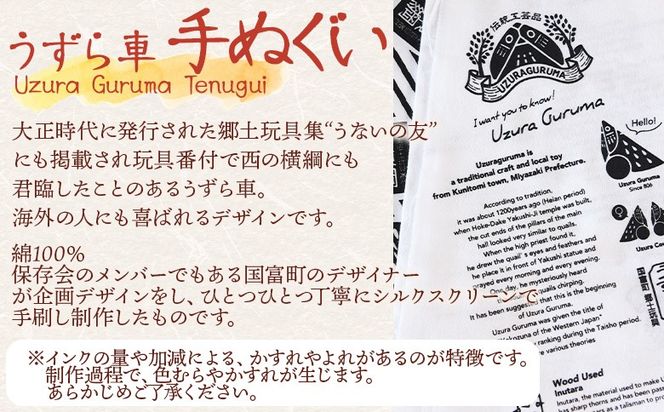 うずら車 手ぬぐい
Uzura Guruma Tenugui
大正時代に発行された郷土玩具集“うないの友”
にも掲載され玩具番付で西の横綱にも
君臨したことのあるうずら車。
海外の人にも喜ばれるデザインです。
綿100%
保存会のメンバーでもある国富町のデザイナー
が企画デザインをし、ひとつひとつ丁寧にシルクスクリーンで
手刷し制作したものです。
※インクの量や加減による、かすれやよれがあるのが特徴です。
制作過程で、色むらやかすれが生じます。
あらかじめご了承ください。
伝統工芸品
UZURAGURUMA
I want you to know!
Uzura Guruma
Uzuraguruma is
a traditional craft and local toy
from Kunitomi town, Miyazaki Prefecture.
According to tradition,
it was about 1200years ago (Heian period)
when Hoke-Dake Yakushi-Ji temple was built,
the cut ends of the pillars of the main
hall looked very similar to quails.
When the high priest found it,
he drew the quail's eyes and feathers and
he place it in front of Yakushi statue and
prayed every morning and every evening.
One day, he mysteriously
quails chirping.
It has been suggested that this is the beginning
of Uzura Guruma.
Uzura Guruma was given the title of
Western Japan"
ranking during the Taisho period.
various theories
Hello!
Uzura Guruma
Since 806
国富町 郷土玩具
Wood Used
Inutara
Inutara, the material used to make
has sharp thorns and has been
as a talisman to